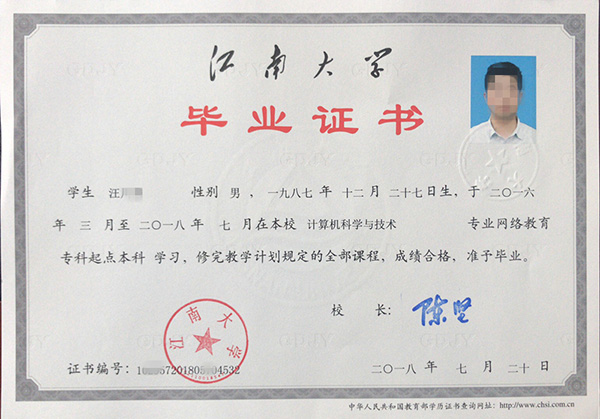 江南大学
毕业证书
学生 汪 性别 男 ，一九八七 年 十二 月 二十七日生，于 二〇一六
年 三 月至 二〇一八 年 七 月在本校 计算机科学与技术 专业网络教育
专科起点本科 学习，修完教学计划规定的全部课程，成绩合格，准予毕业。
校 长： 陈坚
江南大学
证书编号： 57201805 04532 二〇一八 年 七 月 二十 日
中华人民共和国教育部学历证书查询网址：http://www.chsi.com.cn